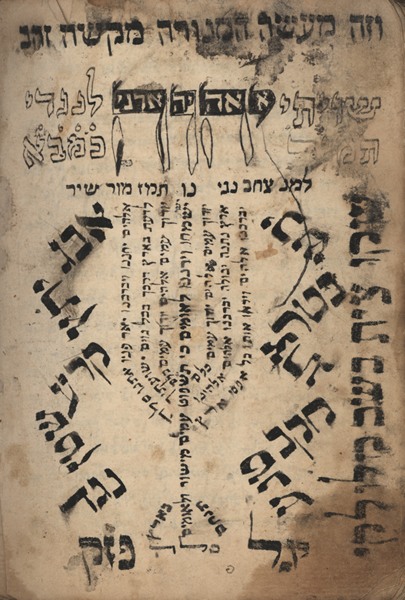 וזה מעשה המנורה מקשה זהב
שויתי
לנגדי
למנ צחב נגי נו תמז מור שיר
אלהים יחננו ויברכנו יאר פניו אתנו סלה
לדעת בארץ דרכך בכל גוים ישועתך
יודוך עמים אלהים יודוך עמים כלם
ישמחו וירננו לאומים כי תשפוט עמים מישור ולאומים
בארץ
תנחם
סלה
יודוך עמים אלהים יודוך עמים
ארץ נתנה יבולה יברכנו אלהים אלהינו
יברכנו אלהים וייראו אותו כל אפסי ארץ
אבג יתץ קרע שטן נגד
בטר צתג חקב טנע
יגל
פזק
שקו צית